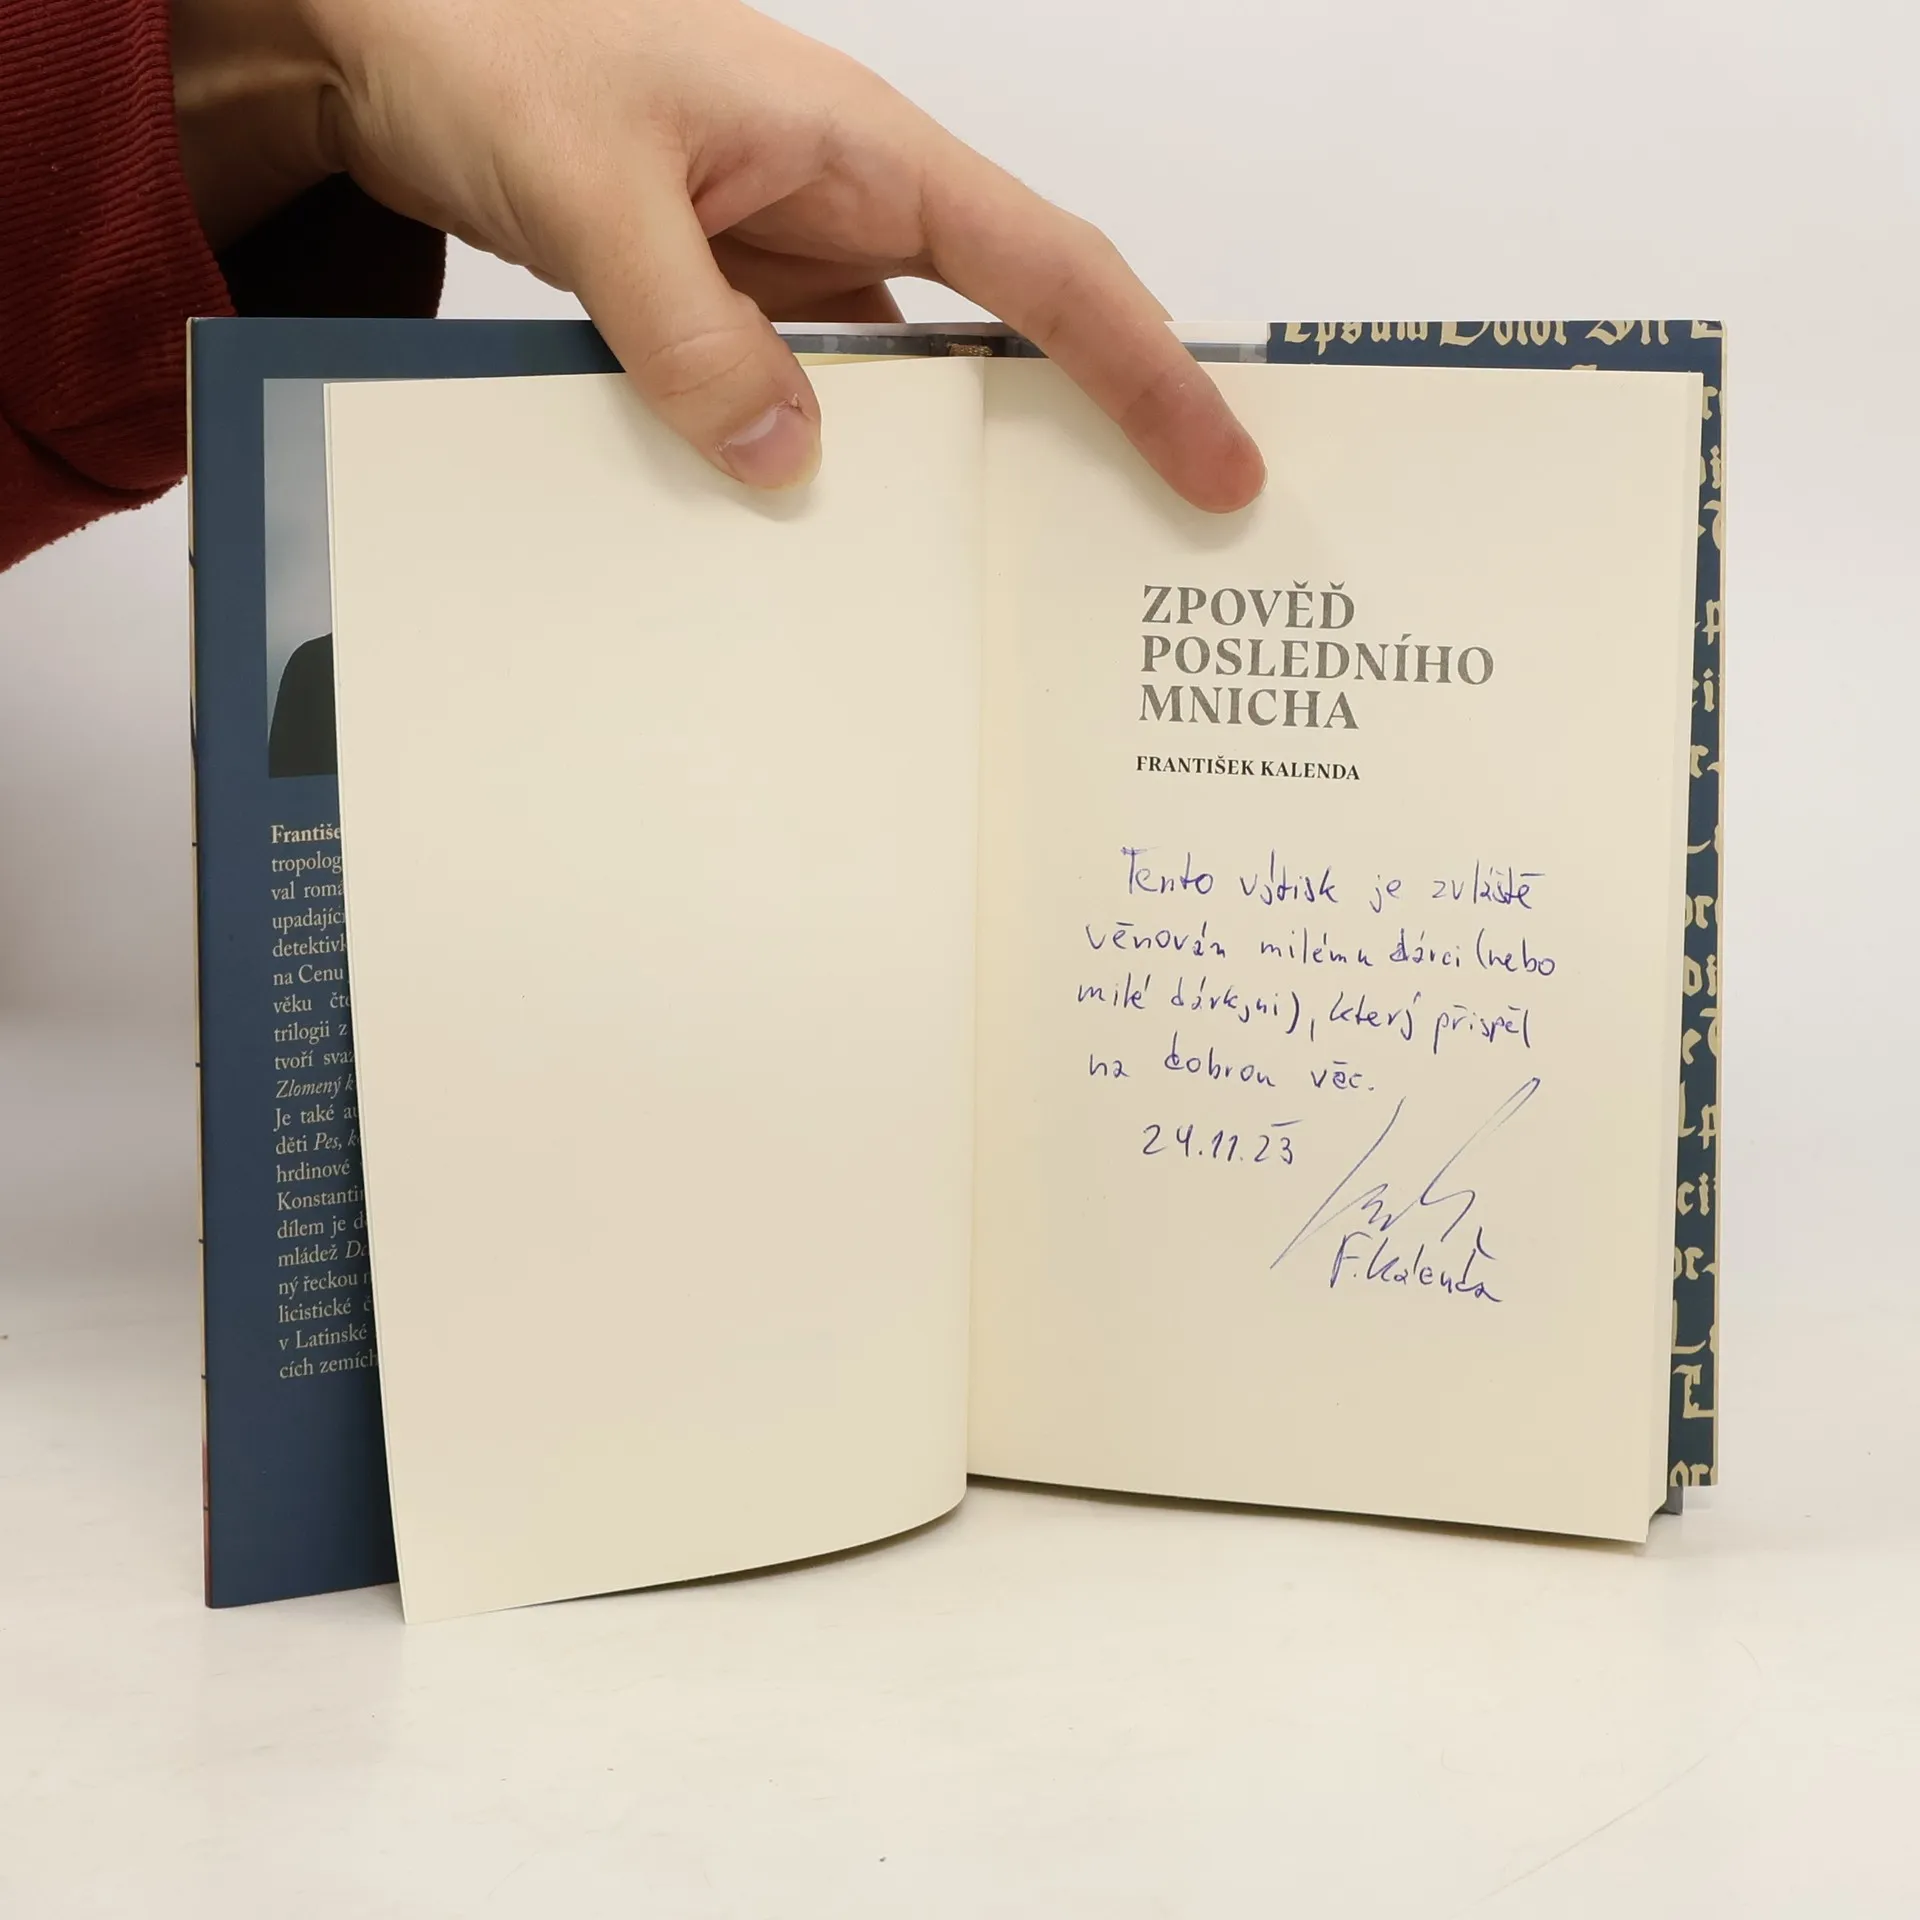 Františe
tropolog
val romá
upadajíc
detektivk
na Cenu
věku čte
trilogii z
tvoří svaz
Zlomený k
Je také au
děti Pes, k
hrdinové
Konstantin
dílem je d
mládež
ný řeckou
licistické
v Latinské
cích zemích
Epsum Dolor Sit
ZPOVĚĎ
POSLEDNÍHO
MNICHA
FRANTIŠEK KALENDA
Tento výtisk je zvláště
věnován milému dárci (nebo
milé dárkyni), který přispěl
na dobrou věc.
24.11.23
F. Kalenda